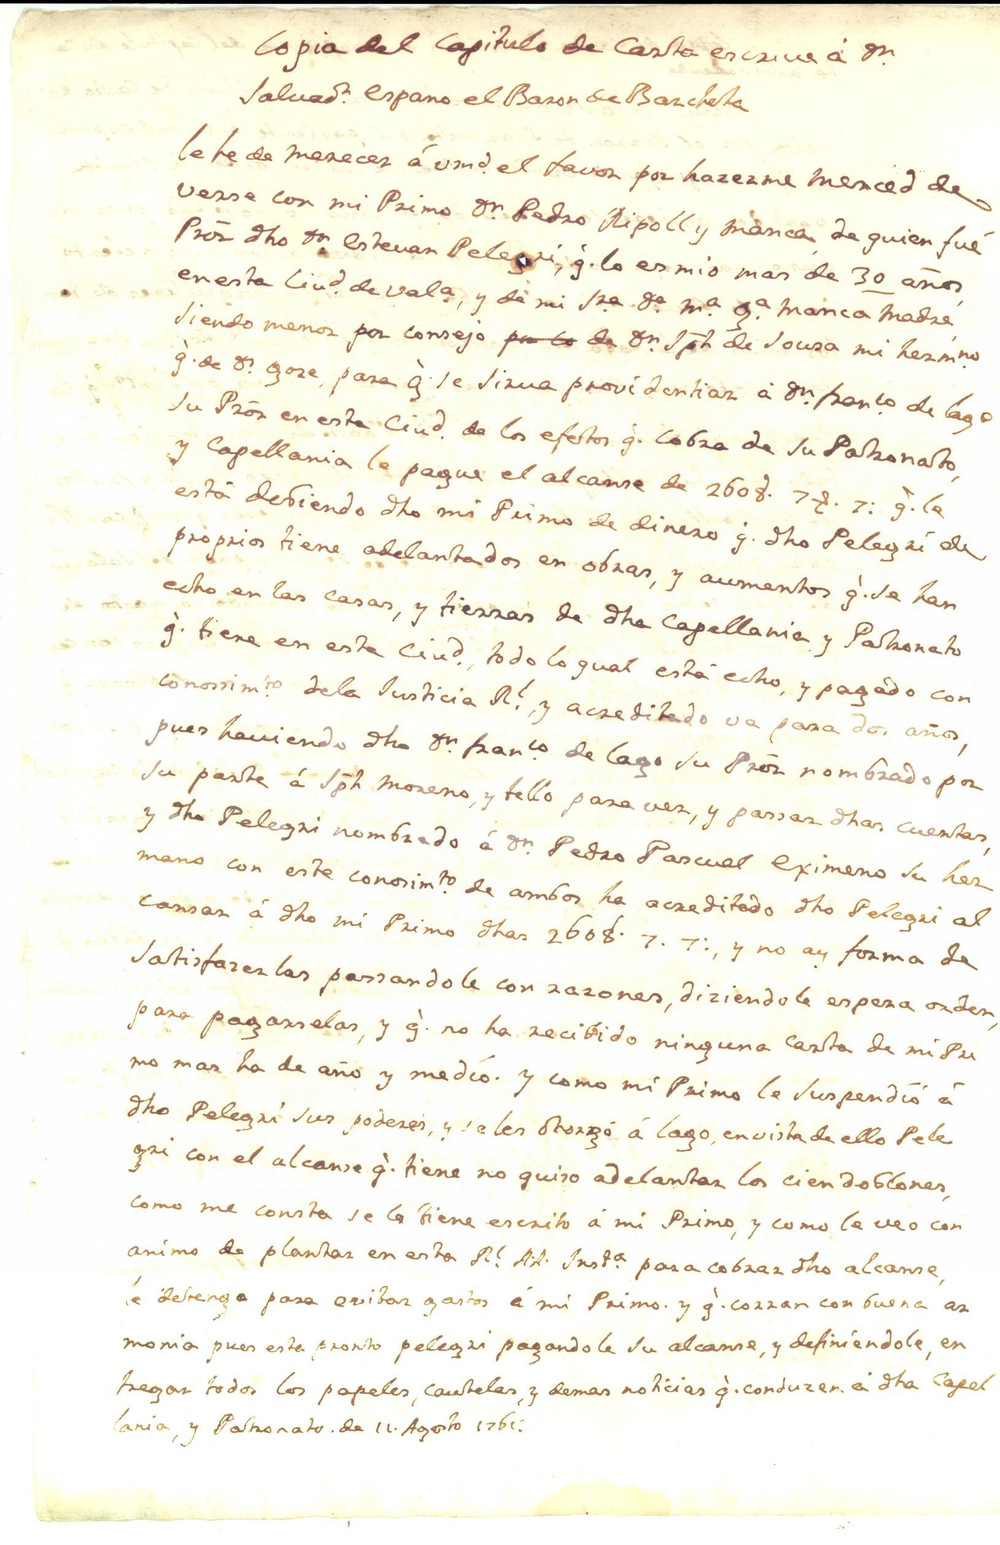 Copia del Capitulo de Carta escrive á Dn.
Salvadr. Espano el Baron de Barcheta
le he de merecer á vmd. el favor por hazerme merced de
verse con mi Primo Dn. Pedro Ripoll y Manca, de quien fué
Pror. dho Dn. Estevan Pelegrí, q. lo es mio mas de 30 años,
en esta Ciud. de vala., y de mi Sra. Da. Ma. Ga. Manca Madre
siendo menor por consejo de Dn. Sph de Sousa mi hermno.
q. de Ds. goze, para q. se sirva providentiar á Dn. franco. de lago
su Pror en esta Ciud. de los efectos q. cobra de su Patronato,
y Capellania le pague el alcanse de 260 7 7: q. le
está debiendo dho mi Primo de dinero q. dho Pelegrí de
proprios tiene adelantados en obras, y aumentos q. se han
echo en las casas, y tierras de dha Capellania y Patronato
q. tiene en esta Ciud., todo lo qual está echo, y pagado con
conossimto. dela Justicia Rl., y acreditado va para dos años,
pues haviendo dho Dn. franco. de lago su Pror nombrado por
su parte á Sph Moreno, y tello para ver, y passar dhas cuentas,
y dho Pelegri nombrado á Dn. Pedro Pascual Eximeno su her
mano con este conosimto. de ambos ha acreditado dho Pelegri al
cansar á dho mi Primo dhas 260 7. 7:, y no ay forma de
satisfazerlas passandole con razones, diziendole espera orden,
para pagarselas, y q. no ha recibido ninguna carta de mi Pri
mo mas ha de año y medió. y como mi Primo le suspendió á
dho Pelegrí sus poderes, y se les otorgó á lago, en vista de ello Pele
gri con el alcanse q. tiene no quiso adelantar los cien doblones,
como me consta se lo tiene escrito á mi Primo, y como le veo con
animo de plantar en esta Rl. Au. Insta. para cobrar dho alcanse,
le detengo para evitar gastos á mi Primo. y q. corran con buena ar
monia pues esta pronto pelegri pagandole su alcanse, y definiéndole, en
tregar todos los papeles, cautelas, y demas noticias q. conduzen á dha Capel
lania, y Patronato. de 11. Agosto 1761.